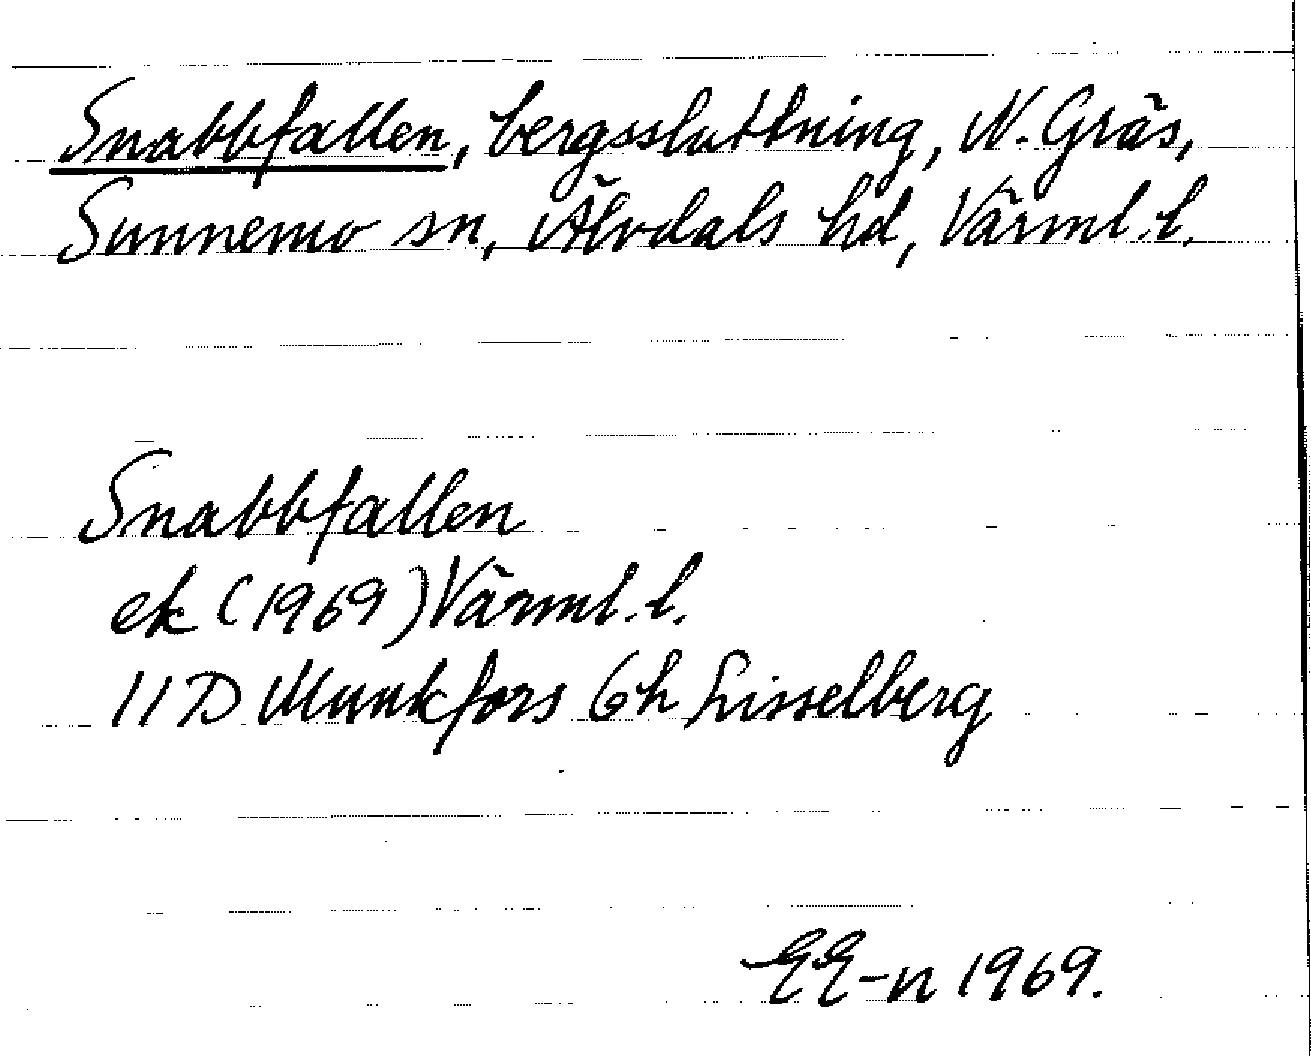 Snabbfallen, bergssluttning, N. Gräs,
Sunnemo sn, Älvdals hd, Värml. l.
Snabbfallen
ek (1969) Värml. l.
11 D Munkfors 6h Lisselberg
EE-n 1969.